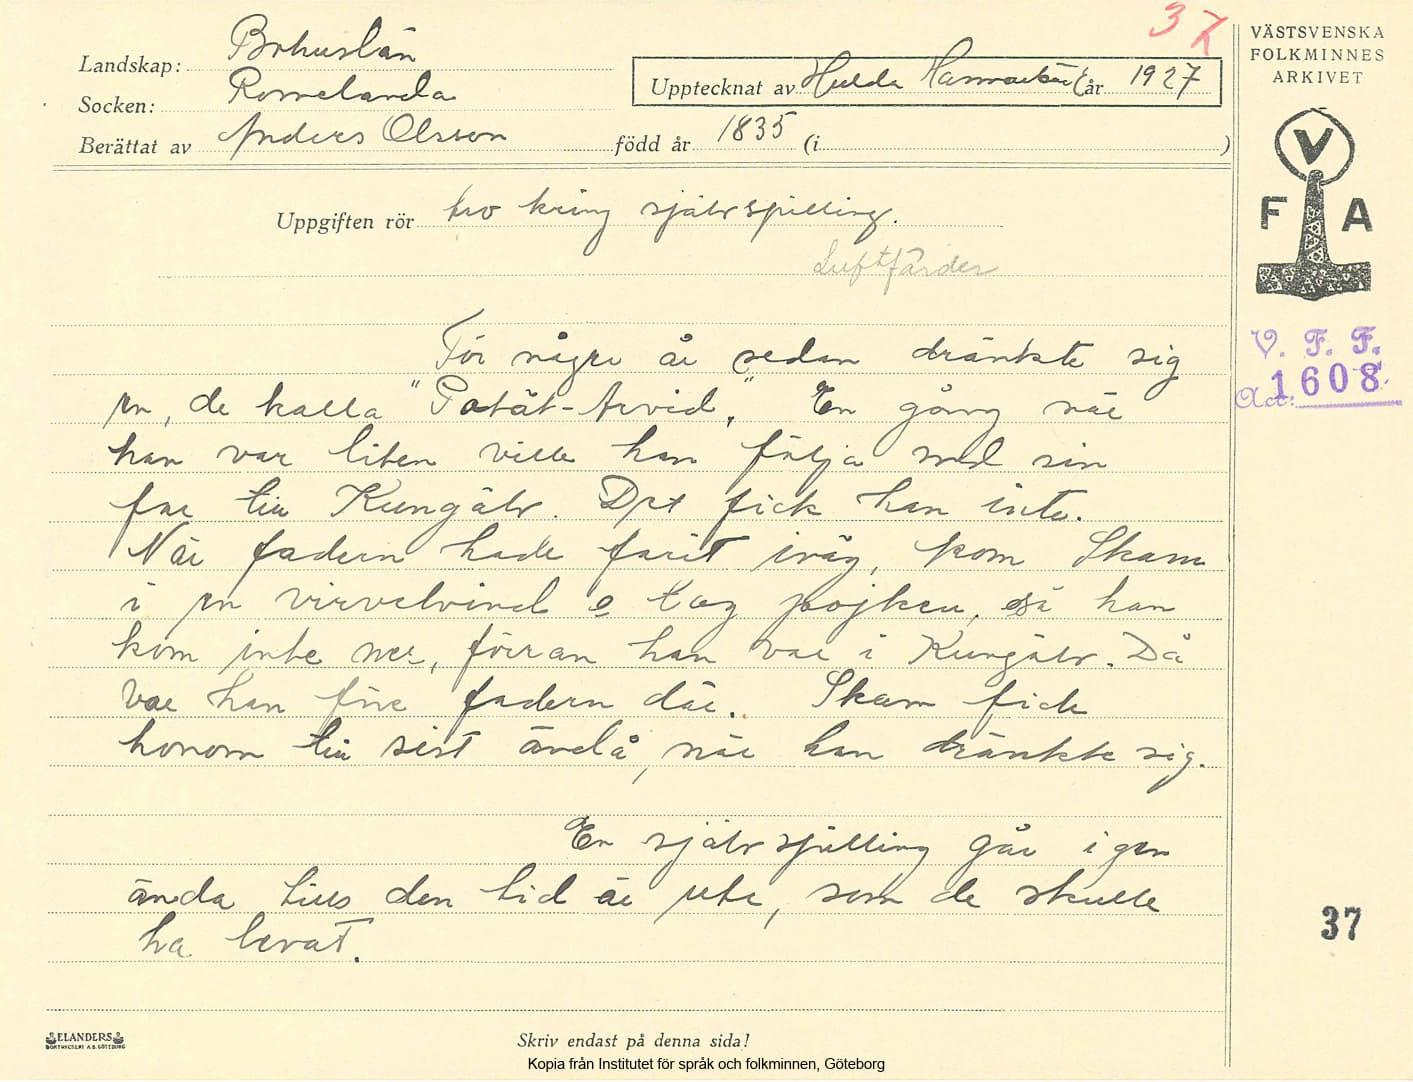 37
Landskap: Bohuslän
Socken: Romelanda
Upptecknat av Hulda Hammarbäck år 1927
Berättat av Anders Olsson född år 1835 (i )
VÄSTSVENSKA
FOLKMINNES
ARKIVET
V
F A
Uppgiften rör tro kring självspilling.
Luftfärder
V. F. F.
Acc: 1608
För några år sedan dränkte sig
en, de kalla "Potät-Arvid." En gång när
han var liten ville han följa med sin
far till Kungälv. Det fick han inte.
När fadern hade farit iväg, kom Skam
i en virvelvind o tog pojken, så han
kom inte ner, förran han var i Kungälv. Då
var han före fadern där. Skam fick
honom till sist ändå, när han dränkte sig.
En självspilling går igen
ända tills den tid är ute, som de skulle
ha levat.
37
ELANDERS
BOKTRYCKERI A.B. GÖTEBORG
Skriv endast på denna sida!
Kopia från Institutet för språk och folkminnen, Göteborg